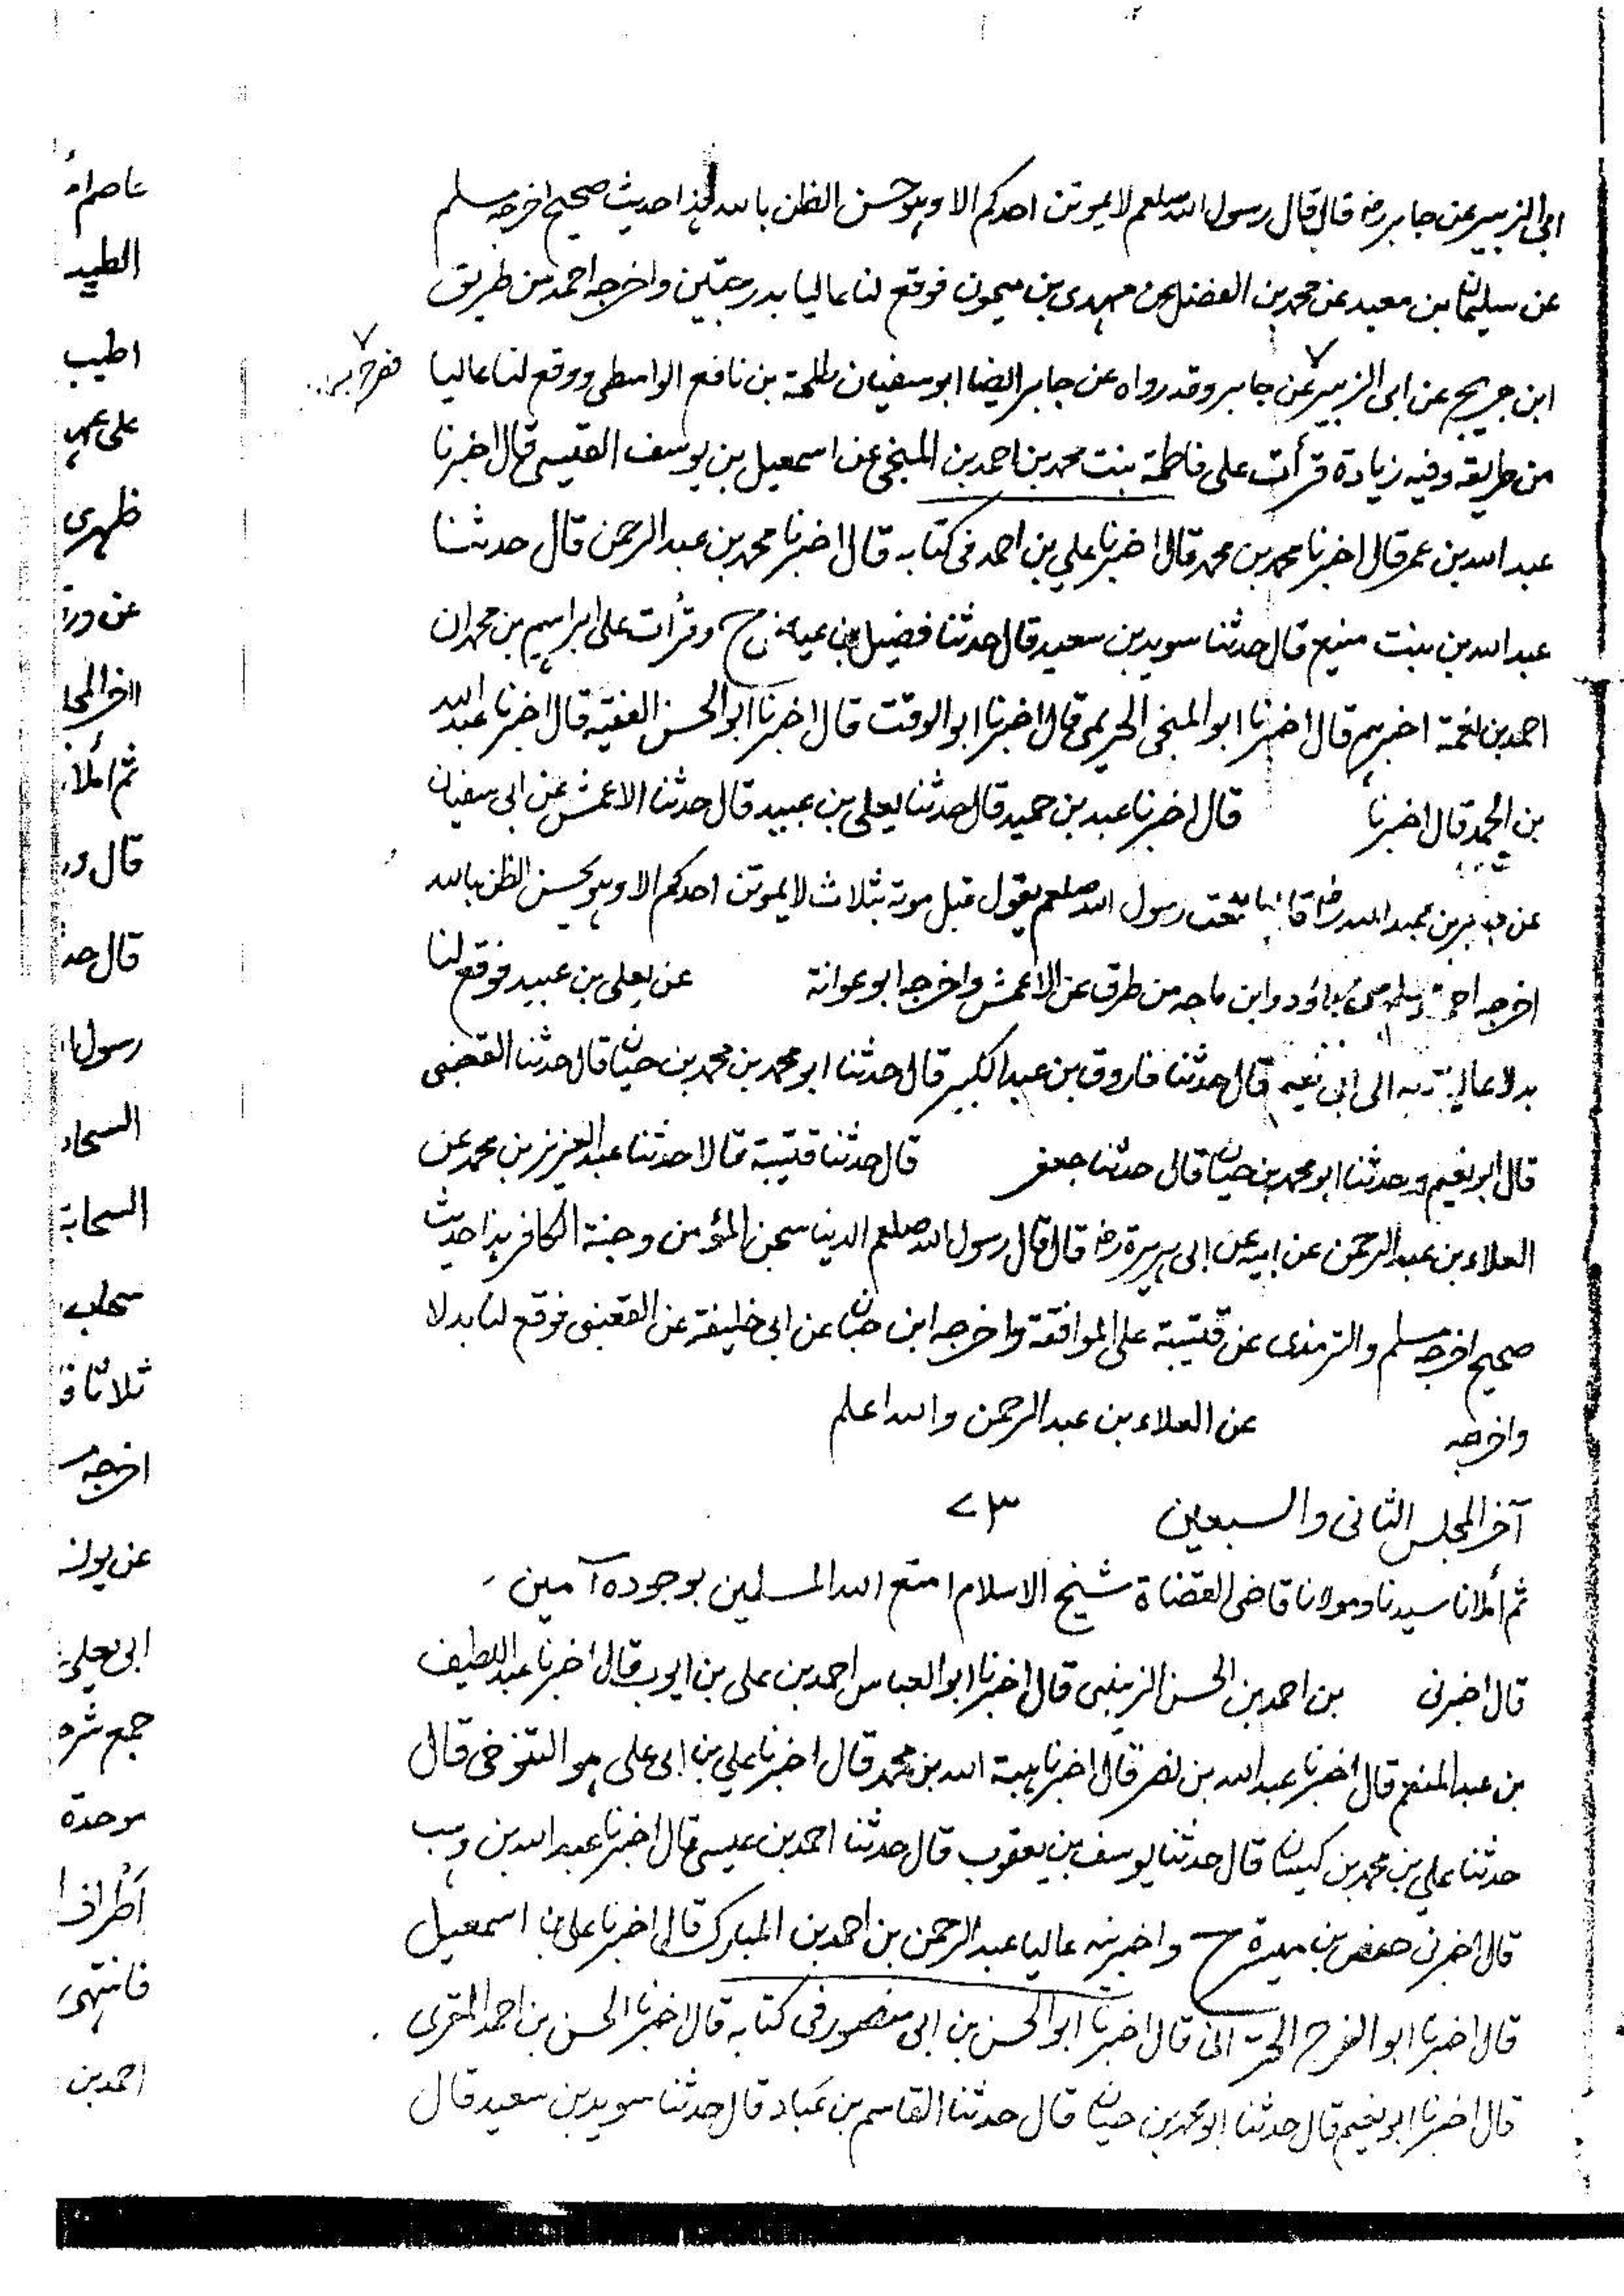 ابى الزبير عن جابر رضا قال قال رسول الله صلعم لا يموتن احدكم الا وهو حسن الظن بالله هذا حديث صحيح اخرجه مسلم
عن سليمان بن معبد عن محمد بن الفضل عن مهدى بن ميمون فوقع لنا عاليا بدرجتين واخرجه احمد من طريق
ابن جريج عن ابى الزبير عن جابر وقد رواه عن جابر ايضا ابو سفيان طلحة بن نافع الواسطى ووقع لنا عاليا
من طريقه وفيه زيادة قرأت على فاطمة بنت محمد بن احمد بن المنجى عن اسمعيل بن يوسف القيسى قال اخبرنا
عبد الله بن عمر قال اخبرنا محمد بن محمد قال اخبرنا علي بن احمد فى كتابه قال اخبرنا محمد بن عبد الرحمن قال حدثنا
عبد الله بن بنت منيع قال حدثنا سويد بن سعيد قال حدثنا فضيل بن عياض ح وقرأت على ابراهيم بن محمد ان
احمد بن نعمة اخبرهم قال اخبرنا ابو المنجى الحريمى قال اخبرنا ابو الوقت قال اخبرنا ابو الحسن الفقيه قال اخبرنا عبد الله
بن الحمد قال اخبرنا قال اخبرنا عبد بن حميد قال حدثنا يعلى بن عبيد قال حدثنا الاعمش عن ابى سفيان
عن جابر بن عبد الله رضا قال سمعت رسول الله صلعم يقول قبل موته بثلاث لا يموتن احدكم الا وهو يحسن الظن بالله
اخرجه احمد ومسلم وابن ماجه من طرق عن الاعمش واخرجه ابو عوانة عن يعلى بن عبيد فوقع لنا
بدلا عاليا وبه الى ابى نعيم قال حدثنا فاروق بن عبد الكبير قال حدثنا ابو محمد بن محمد بن حيان قال حدثنا القعنبى
قال ابو نعيم وحدثنا ابو محمد بن حيان قال حدثنا جعفر قال حدثنا قتيبة قالا حدثنا عبد العزيز بن محمد عن
العلاء بن عبد الرحمن عن ابيه عن ابى هريرة رضا قال قال رسول الله صلعم الدنيا سجن المؤمن وجنة الكافر هذا حديث
صحيح اخرجه مسلم والترمذى عن قتيبة على الموافقة واخرجه ابن حبان عن ابى خليفة عن القعنبى فوقع لنا بدلا
واخرجه عن العلاء بن عبد الرحمن والله اعلم
آخر المجلس الثانى والسبعين ٧٣
ثم أملانا سيدنا ومولانا قاضى القضاة شيخ الاسلام امتع الله المسلمين بوجوده آمين
قال اخبرنى بن احمد بن الحسن الزينبى قال اخبرنا ابو العباس احمد بن على بن ايوب قال اخبرنا عبد اللطيف
بن عبد المنعم قال اخبرنا عبد الله بن نصر قال اخبرنا هبة الله بن محمد قال اخبرنا علي بن ابى على هو التنوخى قال
حدثنا علي بن محمد بن كيسان قال حدثنا يوسف بن يعقوب قال حدثنا احمد بن عيسى قال اخبرنا عبد الله بن وهب
قال اخبرنى حفص بن ميسرة ح واخبرنيه عاليا عبد الرحمن بن احمد بن المبارك قال اخبرنا على بن اسمعيل
قال اخبرنا ابو الفرج الحرانى قال اخبرنا ابو الحسن بن ابى منصور فى كتابه قال اخبرنا الحسن بن احمد المقرى
قال اخبرنا ابو نعيم قال حدثنا ابو محمد بن حيان قال حدثنا القاسم بن عباد قال حدثنا سويد بن سعيد قال
الطيب
اطيب
ظهرى
قال
رسول
السحابة
سحاب
اخرجه
ابى يعلى
جمع
موحدة
أطراف
فانتهى
احمد بن